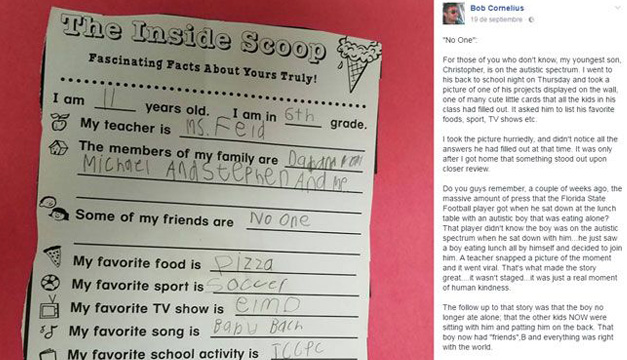 The Inside Scoop
Fascinating Facts About Yours Truly!
I am 11 years old. I am in 6th grade.
My teacher is Ms. Feid
The members of my family are
Michael And Stephen And me
Some of my friends are No One
My favorite food is pizza
My favorite sport is Soccer
My favorite TV show is elmo
My favorite song is
My favorite school activity is
Bob Cornelius
19 de septiembre
"No One":
For those of you who don't know, my youngest son,
Christopher, is on the autistic spectrum. I went to
his back to school night on Thursday and took a
picture of one of his projects displayed on the wall,
one of many cute little cards that all the kids in his
class had filled out. It asked him to list his favorite
foods, sport, TV shows etc.
I took the picture hurriedly, and didn't notice all the
answers he had filled out at that time. It was only
after I got home that something stood out upon
closer review.
Do you guys remember, a couple of weeks ago, the
massive amount of press that the Florida State
Football player got when he sat down at the lunch
table with an autistic boy that was eating alone?
That player didn't know the boy was on the autistic
spectrum when he sat down with him...he just saw
a boy eating lunch all by himself and decided to join
him. A teacher snapped a picture of the moment
and it went viral. That's what made the story
great....it wasn't staged...it was just a real moment
of human kindness.
The follow up to that story was that the boy no
longer ate alone; that the other kids NOW were
sitting with him and patting him on the back. That
boy now had "friends",B and everything was right
with the world.